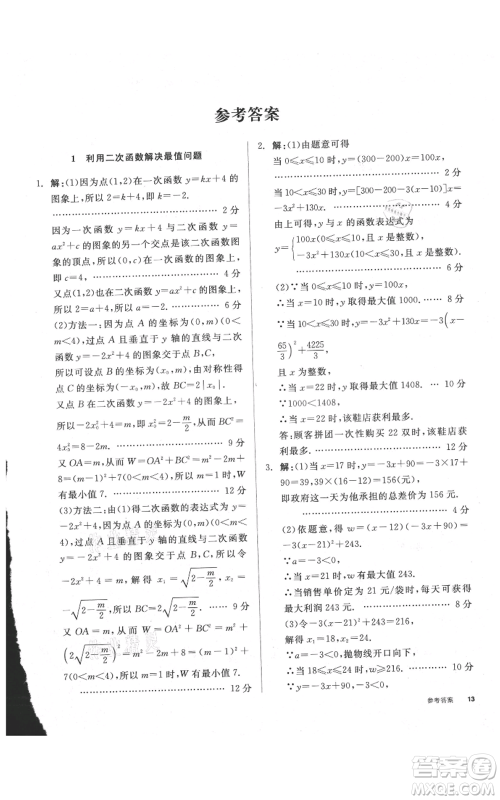 参考答案
1 利用二次函数解决最值问题
1. 解:(1)因为点(1,2)在一次函数 y=kx+4 的
图象上,所以 2=k+4,即 k=-2. …… 2 分
因为一次函数 y=kx+4 的图象与二次函数 y=
ax²+c 的图象的另一个交点是该二次函数图
象的顶点,所以(0,c)在一次函数 y=kx+4 上,
即 c=4. …… 4 分
又点(1,2)也在二次函数 y=ax²+c 的图象上,
所以 a=-2. …… 6 分
(2)方法一:因为点 A 的坐标为(0,m)(0<m<
4),过点 A 且垂直于 y 轴的直线与二次函数
y=-2x²+4 的图象交于点 B,C,所以,可设
点 B 的坐标为(x₀,m),由对称性得
点 C 的坐标为(-x₀,m),故 BC=2|x₀|.
又因为 -2x₀²+4=m,即 x₀²=2-m/2,所以
4x₀²=8-2m. …… 9 分
又 OA=m,所以 W=OA²+BC²=m²+4x₀²=
m²-2m+8=(m-1)²+7(0<m<4),所以 m=1 时,W
有最小值 7. …… 12 分
(2)方法二:由(1)得二次函数的表达式为 y=
-2x²+4,因为点 A 的坐标为(0,m)(0<m<
4),过点 A 且垂直于 y 轴的直线与二次函数
y=-2x²+4 的图象交于点 B,C,所以令
-2x²+4=m,解得 x₁=√(2-m/2),x₂=
-√(2-m/2),所以 BC=2√(2-m/2). …… 9 分
又 OA=m,所以 W=OA²+BC²=m²+
(2√(2-m/2))²=m²-2m+8=(m-1)²+
7(0<m<4),所以 m=1 时,W 有最小值 7.
…… 12 分
2. 解:(1)由题意可得
当 0≤x≤10 时,y=(300-200)x=100x.
…… 2 分
当 10<x≤30 时,y=[300-3(x-10)-200]x
=-3x²+130x. …… 4 分
∴y 与 x 的函数表达式为
y={100x(0≤x≤10,且 x 是整数),
-3x²+130x(10<x≤30,且 x 是整数).
…… 6 分
(2)∵当 0≤x≤10 时,y=100x,
∴当 x=10 时,y 取得最大值 1000.…… 8 分
∵当 10<x≤30 时,y=-3x²+130x=-3(x-
65/3)²+4225/3
且 x 为整数,
∴当 x=22 时,y 取得最大值 1408.…… 11 分
∵1000<1408.
∴当 x=22 时,该鞋店获利最多.
答:顾客拼团一次性购买 22 双时,该鞋店获
利最多. …… 12 分
3. 解:(1)当 x=17 时,y=-3x+90=-3×17
+90=39,39×(16-12)=156(元).
即政府这一天为他承担的总差价为 156 元.
…… 2 分
(2)依题意,得 w=(x-12)(-3x+90)
=-3(x-21)²+243.
∵a=-3<0,
∴当 x=21 时,w 有最大值 243.
∴当销售单价定为 21 元/袋时,每天可获得最
大利润 243 元. …… 8 分
(3)令-3(x-21)²+243=216,
解得 x₁=18,x₂=24.
∵a=-3<0,抛物线开口向下,
∴当 18≤x≤24 时,w≥216. …… 10 分
∵-3<0,
参考答案 13